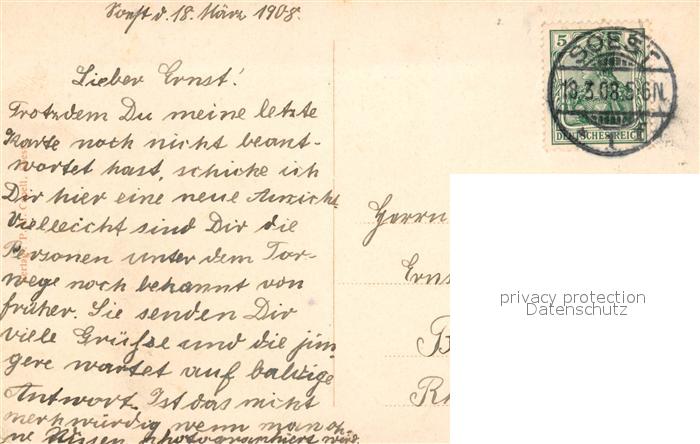 Soest d. 18. März 1908.
Lieber Ernst!
Trotzdem Du meine letzte
Karte noch nicht beant-
wortet hast, schicke ich
Dir hier eine neue Ansicht.
Vielleicht sind Dir die
Personen unter dem Tor-
wege noch bekannt von
früher. Sie senden Dir
viele Grüsse und die jün
gere wartet auf baldige
Antwort. Ist das nicht
merkwürdig wenn man oh-
ne Wissen photographiert wird
5
SOEST
18.3.08.5-6N.
1
DEUTSCHES REICH
Herrn
Ernst
privacy protection
Datenschutz